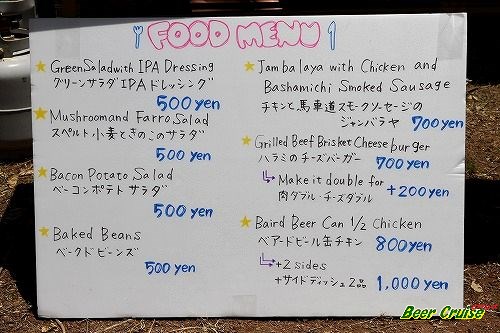 FOOD MENU
Green Salad with IPA Dressing
グリーンサラダ IPA ドレッシング
500 yen
Mushroom and Farro Salad
スペルト小麦ときのこのサラダ
500 yen
Bacon Potato Salad
ベーコンポテトサラダ
500 yen
Baked Beans
ベークドビーンズ
500 yen
Jambalaya with Chicken and
Bashamichi Smoked Sausage
チキンと馬車道スモークソーセージの
ジャンバラヤ 700 yen
Grilled Beef Brisket Cheese burger
ハラミのチーズバーガー 700 yen
Make it double for
肉ダブル・チーズダブル +200 yen
Baird Beer Can 1/2 Chicken
ベアードビール缶チキン 800 yen
+2 sides
+サイドディッシュ2品 1,000 yen
Beer Cruise